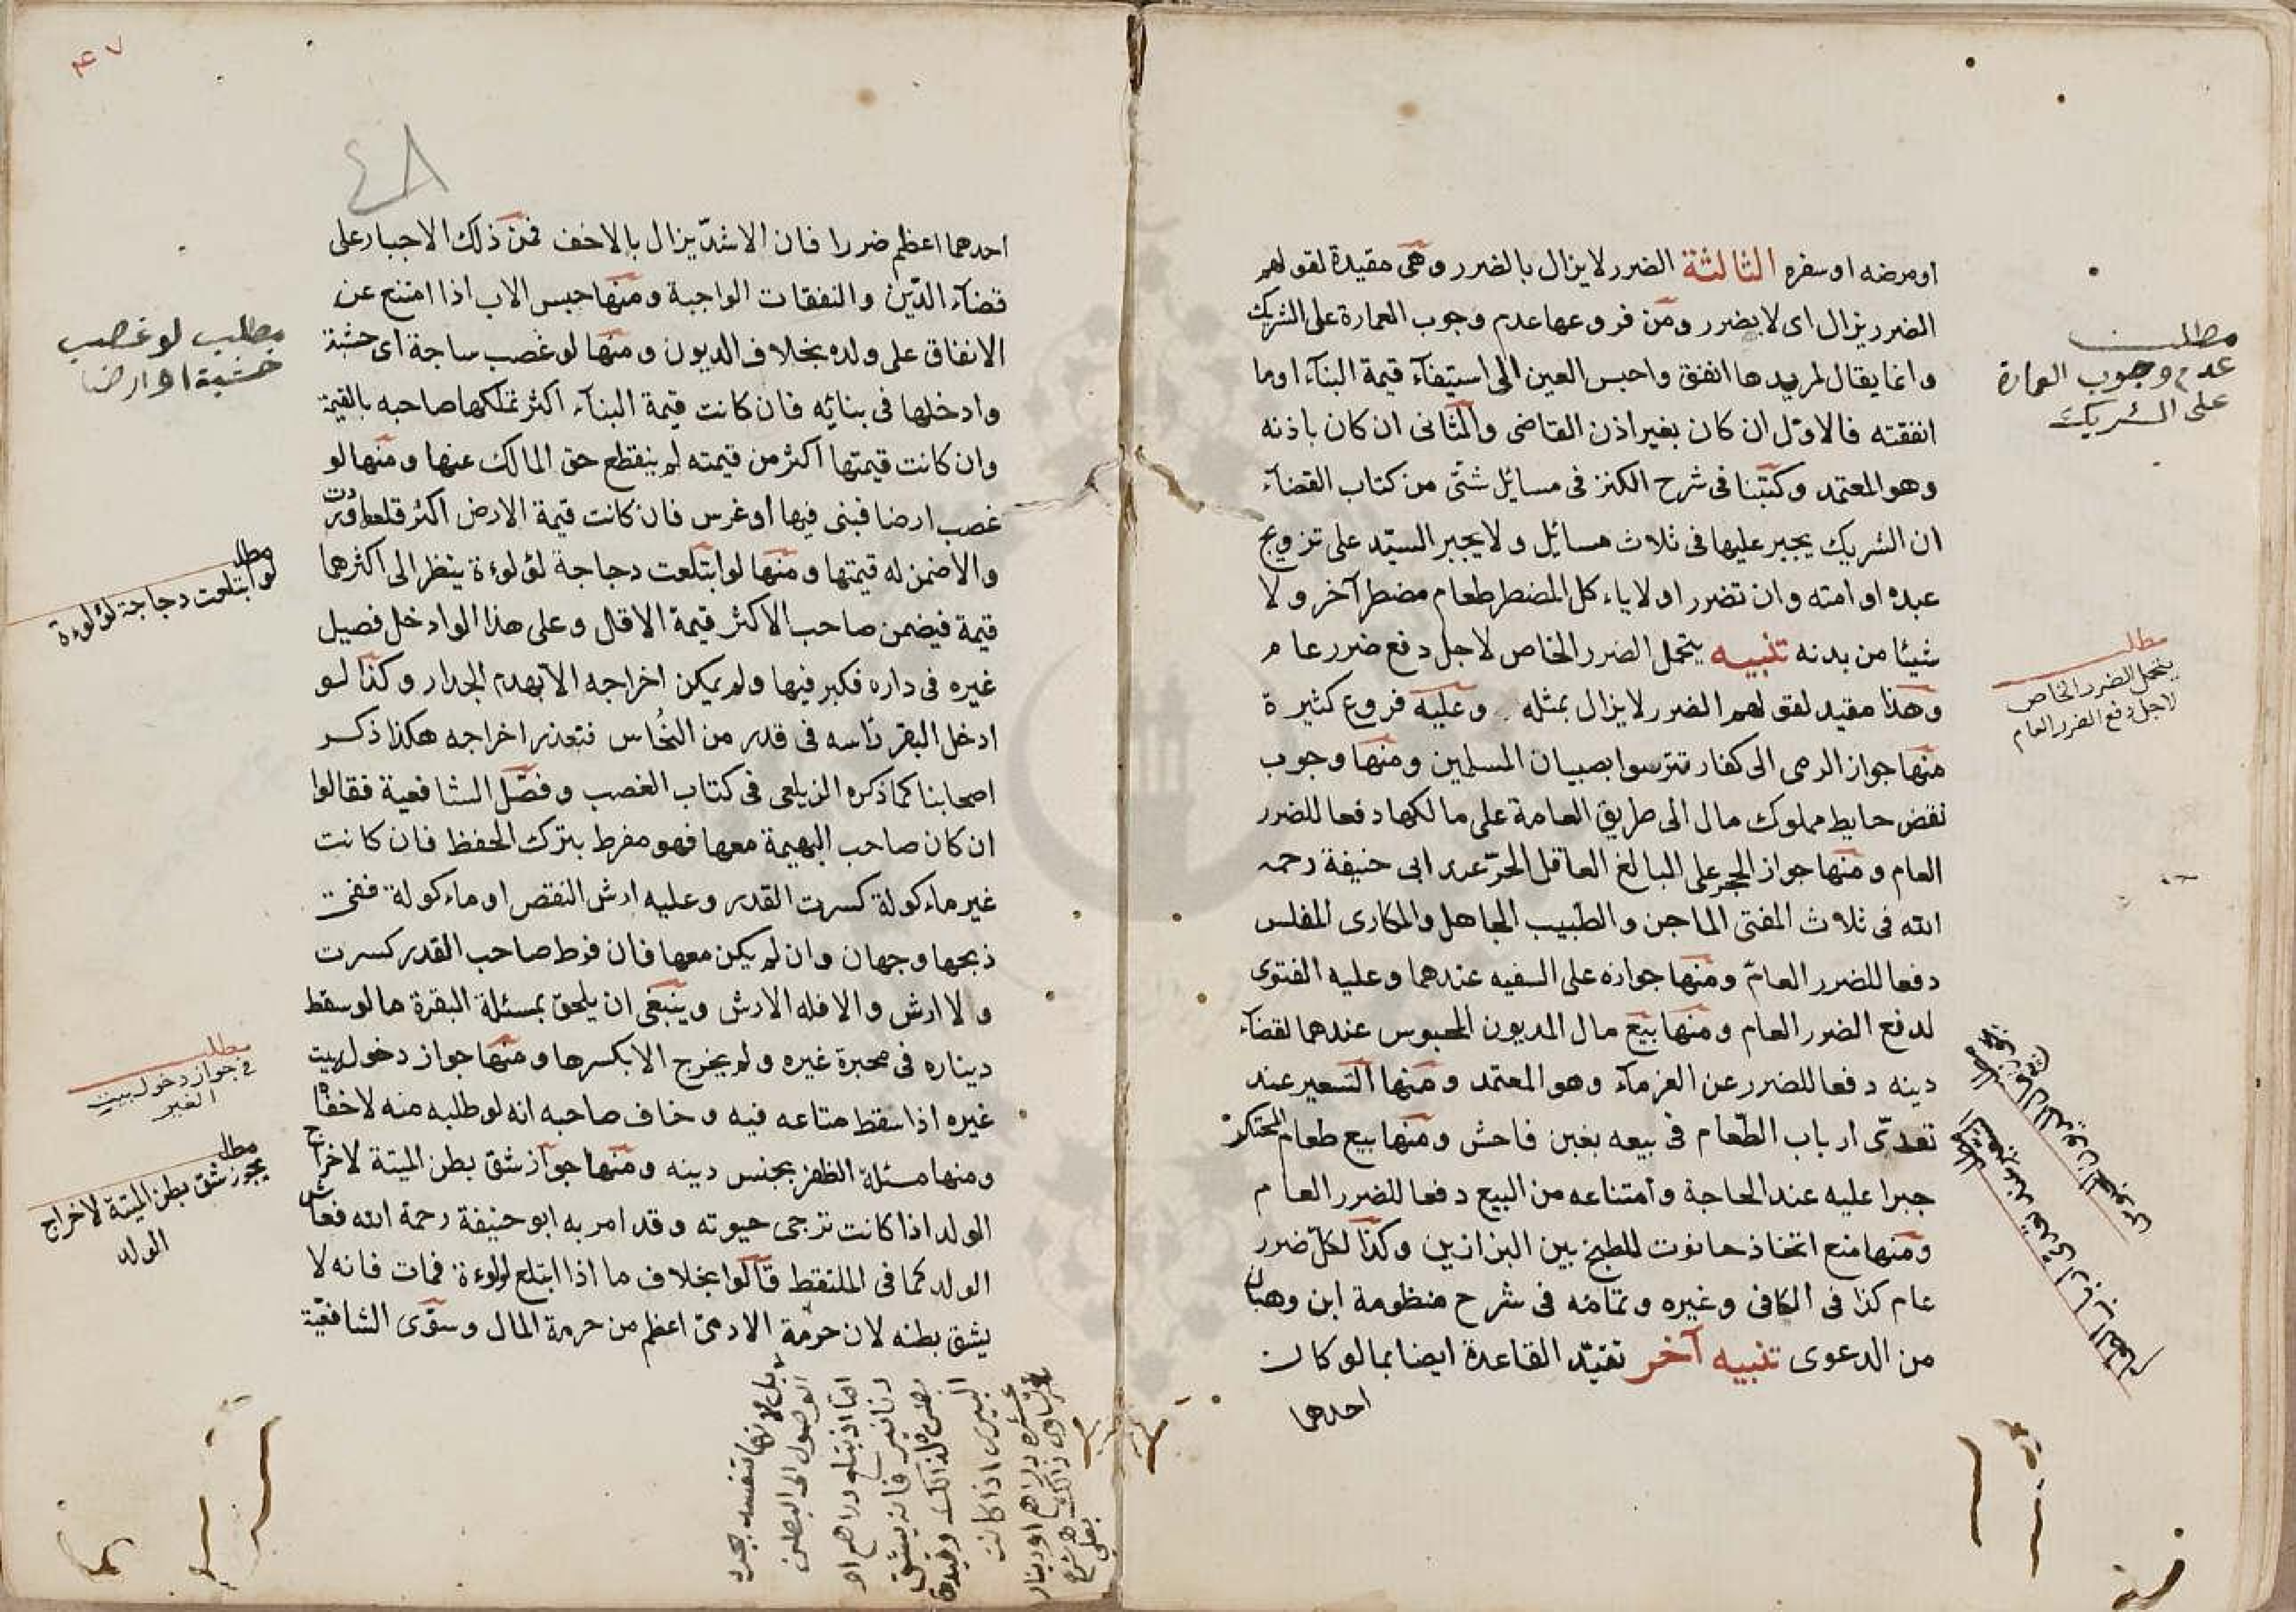 او مرضه او سفره الثالثة الضرر لا يزال بالضرر وهى مقيدة لقولهم
الضرر يزال اى لا بضرر ومن فروعها عدم وجوب العمارة على الشريك
وانما يقال لمريدها انفق واحبس العين الى استيفآء قيمة البنآء او ما
انفقته فالاول ان كان بغير اذن القاضى والثانى ان كان باذنه
وهو المعتمد وكتبنا فى شرح الكنز فى مسايل شتى من كتاب القضآء
ان الشريك يجبر عليها فى ثلاث مسائل ولا يجبر السيّد على تزويج
عبده او امته وان تضرر اولا ياءكل المضطر طعام مضطر آخر ولا
شيئا من بدنه تنبيه يتحمل الضرر الخاص لاجل دفع ضرر عام
وهذا مقيد لقولهم الضرر لا يزال بمثله وعليه فروع كثيرة
منها جواز الرمى الى كفار تترسوا بصبيان المسلمين ومنها وجوب
نقض حايط مملوك مال الى طريق العامة على مالكها دفعا للضرر
العام ومنها جواز الحجر على البالغ العاقل الحرّ عند ابى حنيفة رحمه
الله فى ثلاث المفتى الماجن والطبيب الجاهل والمكارى المفلس
دفعا للضرر العامّ ومنها جوازه على السفيه عندهما وعليه الفتوى
لدفع الضرر العام ومنها بيع مال المديون المحبوس عندهما لقضآء
دينه دفعا للضرر عن الغرمآء وهو المعتمد ومنها التسعير عند
تعدّى ارباب الطّعام فى بيعه بغبن فاحش ومنها بيع طعام المحتكر
جبرا عليه عند الحاجة وامتناعه من البيع دفعا للضرر العام
ومنها منع اتخاذ حانوت للطبخ بين البزازين وكذا لكلّ ضرر
عام كذا فى الكافى وغيره وتمامه فى شرح منظومة ابن وهبان
من الدعوى تنبيه آخر تقيّد القاعدة ايضا بما لو كان
احدهما
مطلب
عدم وجوب العمارة
على الشريك
مطلب
يتحمل الضرر الخاص
لاجل دفع الضرر العام
مال المديون المحبوس
التسعير عند تعدى ارباب الطعام
٤٧
٤٨
احدهما اعظم ضررا فان الاشدّ يزال بالاخف فمن ذلك الاجبار على
قضآء الدّين والنفقات الواجبة ومنها حبس الاب اذا امتنع عن
الانفاق على ولده بخلاف الديون ومنها لو غصب ساجة اى خشبة
وادخلها فى بنائه فان كانت قيمة البنآء اكثر تملكها صاحبه بالقيمة
وان كانت قيمتها اكثر من قيمته لم ينقطع حق المالك عنها ومنها لو
غصب ارضا فبنى فيها او غرس فان كانت قيمة الارض اكثر قلعا وردّت
والا ضمن له قيمتها ومنها لو ابتلعت دجاجة لؤلوءة ينظر الى اكثرهما
قيمة فيضمن صاحب الاكثر قيمة الاقل وعلى هذا لو ادخل فصيل
غيره فى داره فكبر فيها ولم يمكن اخراجه الا بهدم الجدار وكذا لو
ادخل البقر رٔاسه فى قدر من النُحاس فتعذر اخراجه هكذا ذكر
اصحابنا كما ذكره الزيلعى فى كتاب الغصب وفصّل الشافعية فقالوا
ان كان صاحب البهيمة معها فهو مفرط بترك الحفظ فان كانت
غير ماءكولة كسرت القدر وعليه ارش النقص او ماءكولة ففى
ذبحها وجهان وان لم يكن معها فان فرط صاحب القدر كسرت
ولا ارش والا فله الارش وينبغى ان يلحق بمسئلة البقرة ما لو سقط
ديناره فى محبرة غيره ولم يخرج الا بكسرها ومنها جواز دخول بيت
غيره اذا سقط متاعه فيه وخاف صاحبه انه لو طلبه منه لاخفاه
ومنها مسئلة الظفر بجنس دينه ومنها جواز شق بطن الميتة لاخراج
الولد اذا كانت ترجى حيوته وقد امر به ابو حنيفة رحمة الله فعاش
الولد كما فى الملتقط قالوا بخلاف ما اذا ابتلع لؤلوءة فمات فانه لا
يشق بطنه لان حرمة الادمىّ اعظم من حرمة المال وسوّى الشافعيّة
مطلب لو غصب
خشبة او ارضا
مطلب
لو ابتلعت دجاجة لؤلوءة
مطلب
فى جواز دخول بيت
الغير
مطلب
يجوز شق بطن الميتة لاخراج
الولد
بل لانها تفسد بمجرد
الوصول الى البطن
اما اذا ابتلع دراهم او
دنانير فانه يشق
اذا كانت
عشرة دراهم او دينار